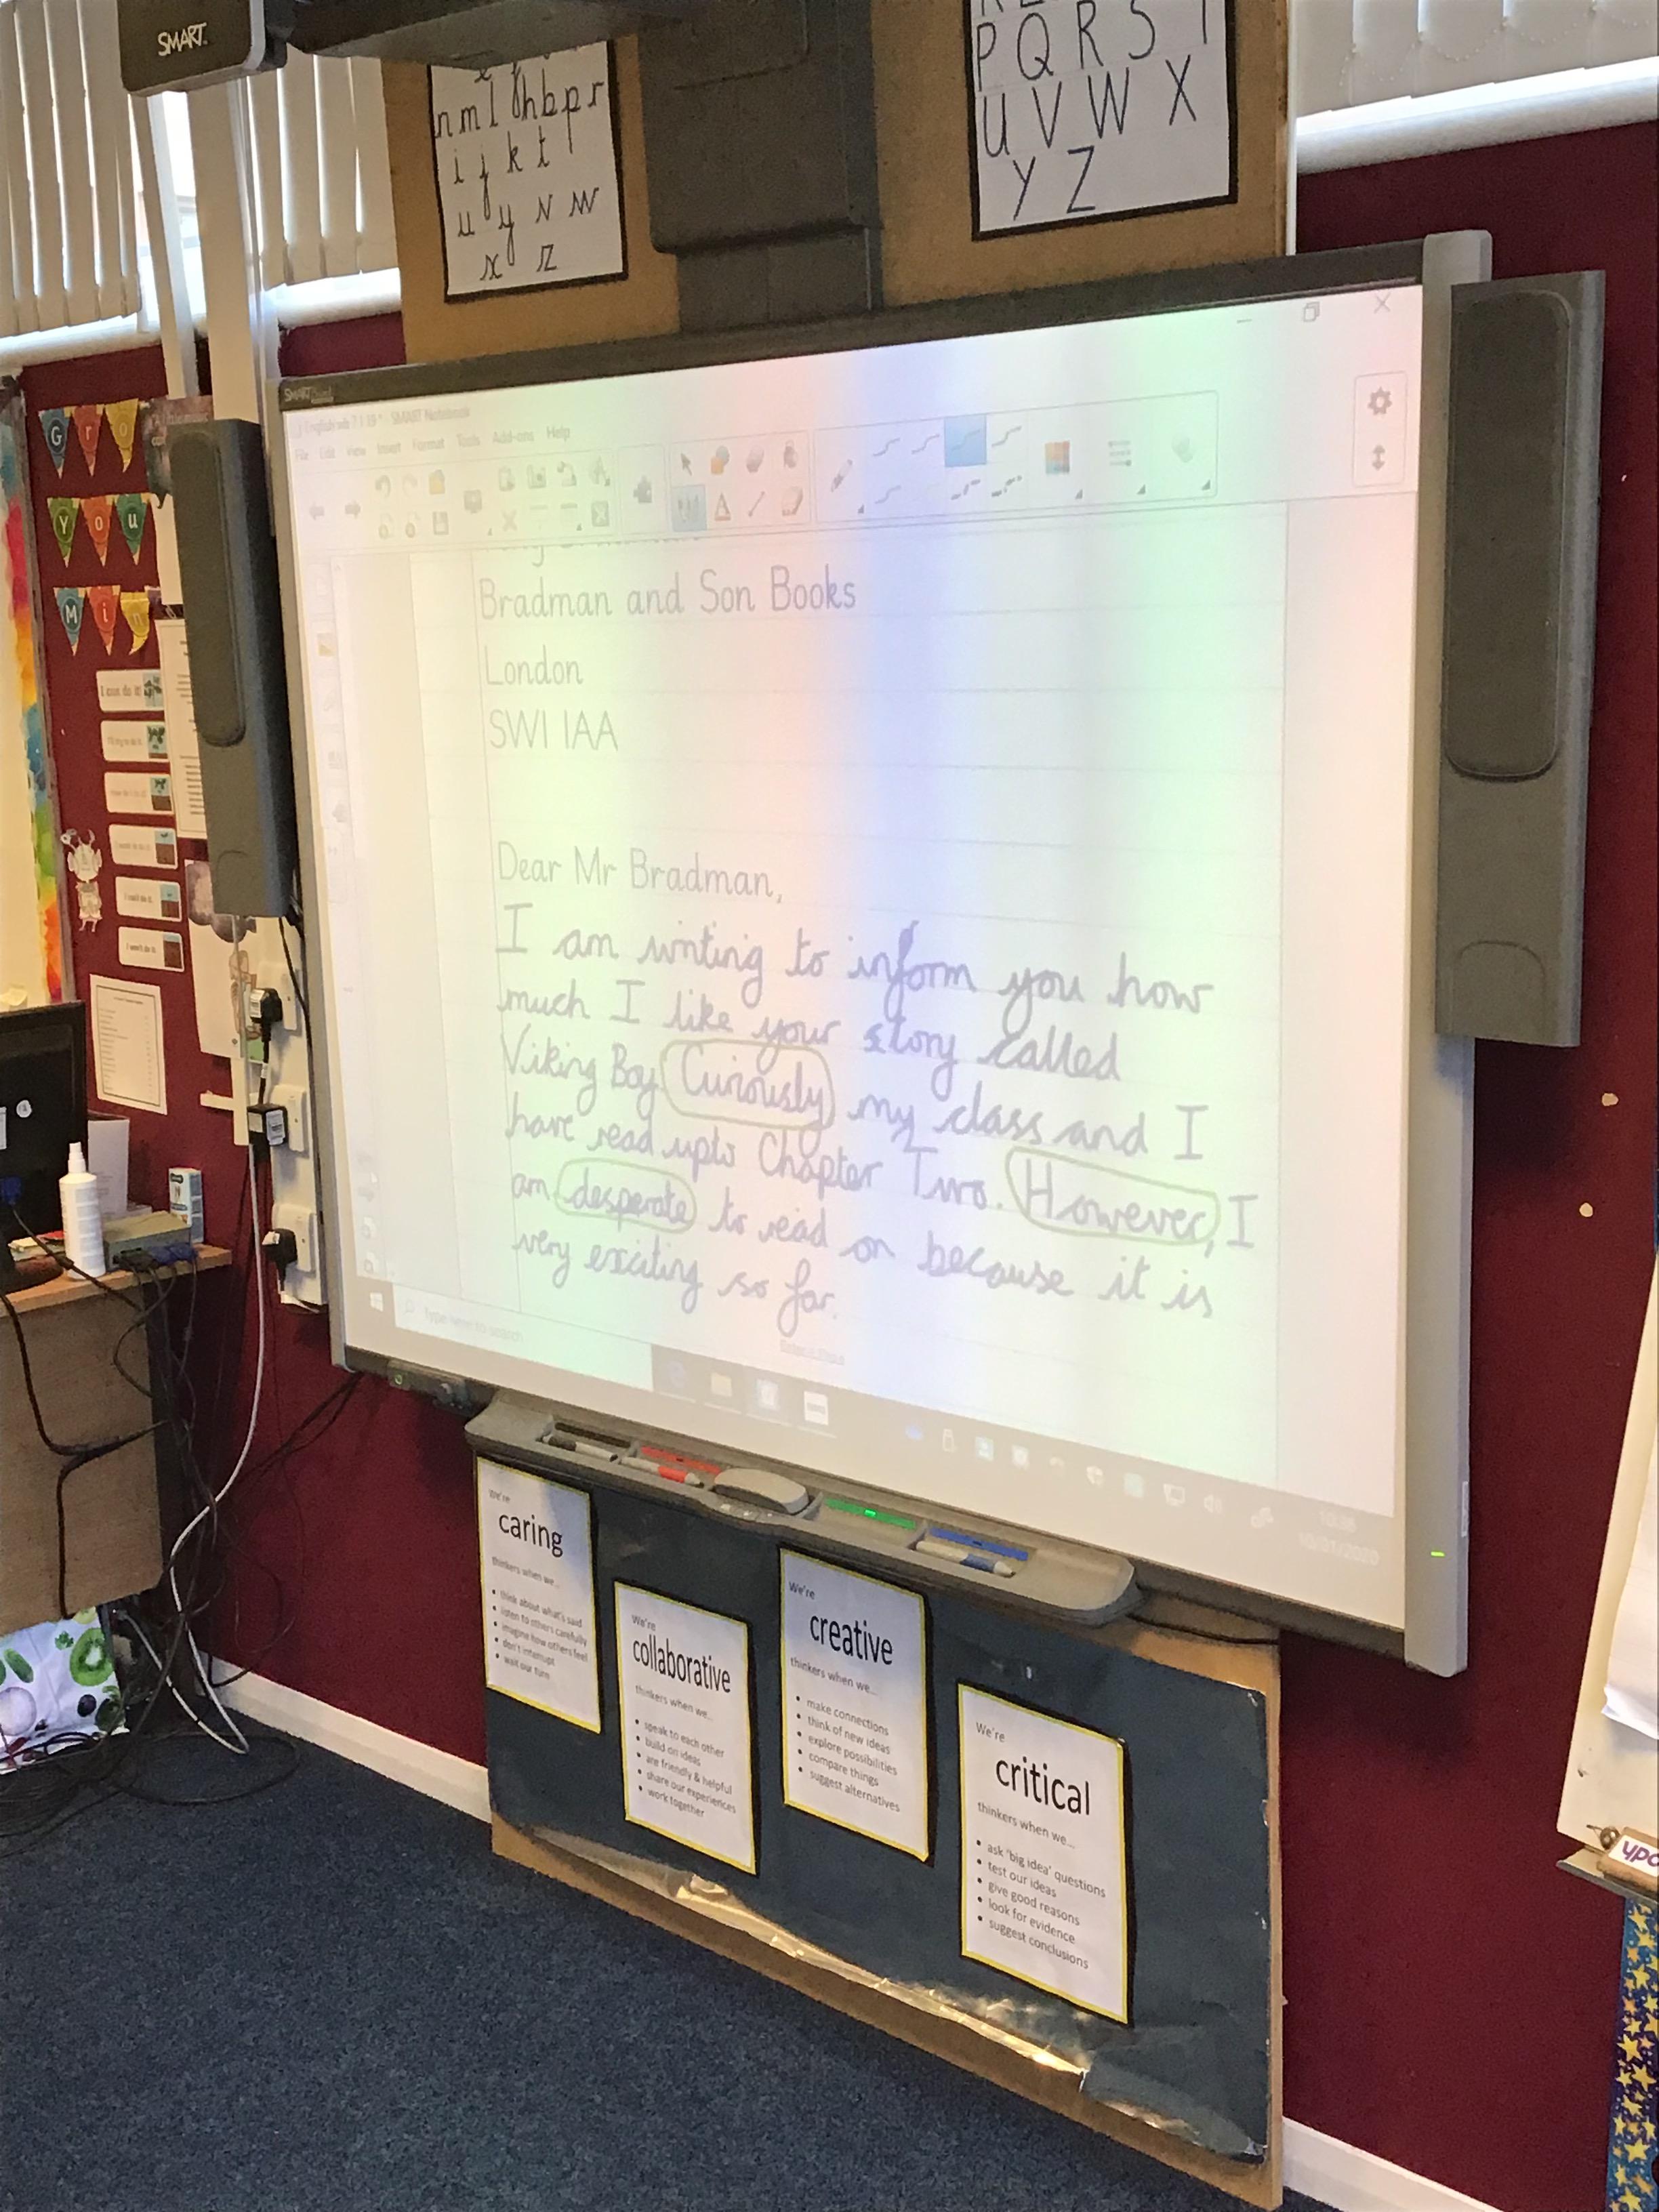 SMART
n m l h b p r
i j k t
u y v w
x z
P Q R S T
U V W X
Y Z
SMART Notebook
File Edit View Insert Format Tools Add-ons Help
Bradman and Son Books
London
SW1 1AA
Dear Mr Bradman,
I am writing to inform you how
much I like your story called
Viking Boy. Curiously my class and I
have read upto Chapter Two. However, I
am desperate to read on because it is
very exciting so far.
Type here to search
10/01/2020
Gro
You
Min
I can do it!
I won't do it
We're
caring
thinkers when we...
• think about what's said
• listen to others carefully
• imagine how others feel
• don't interrupt
• wait our turn
We're
collaborative
thinkers when we...
• speak to each other
• build on ideas
• are friendly & helpful
• share our experiences
• work together
We're
creative
thinkers when we...
• make connections
• think of new ideas
• explore possibilities
• compare things
• suggest alternatives
We're
critical
thinkers when we...
• ask 'big idea' questions
• test our ideas
• give good reasons
• look for evidence
• suggest conclusions